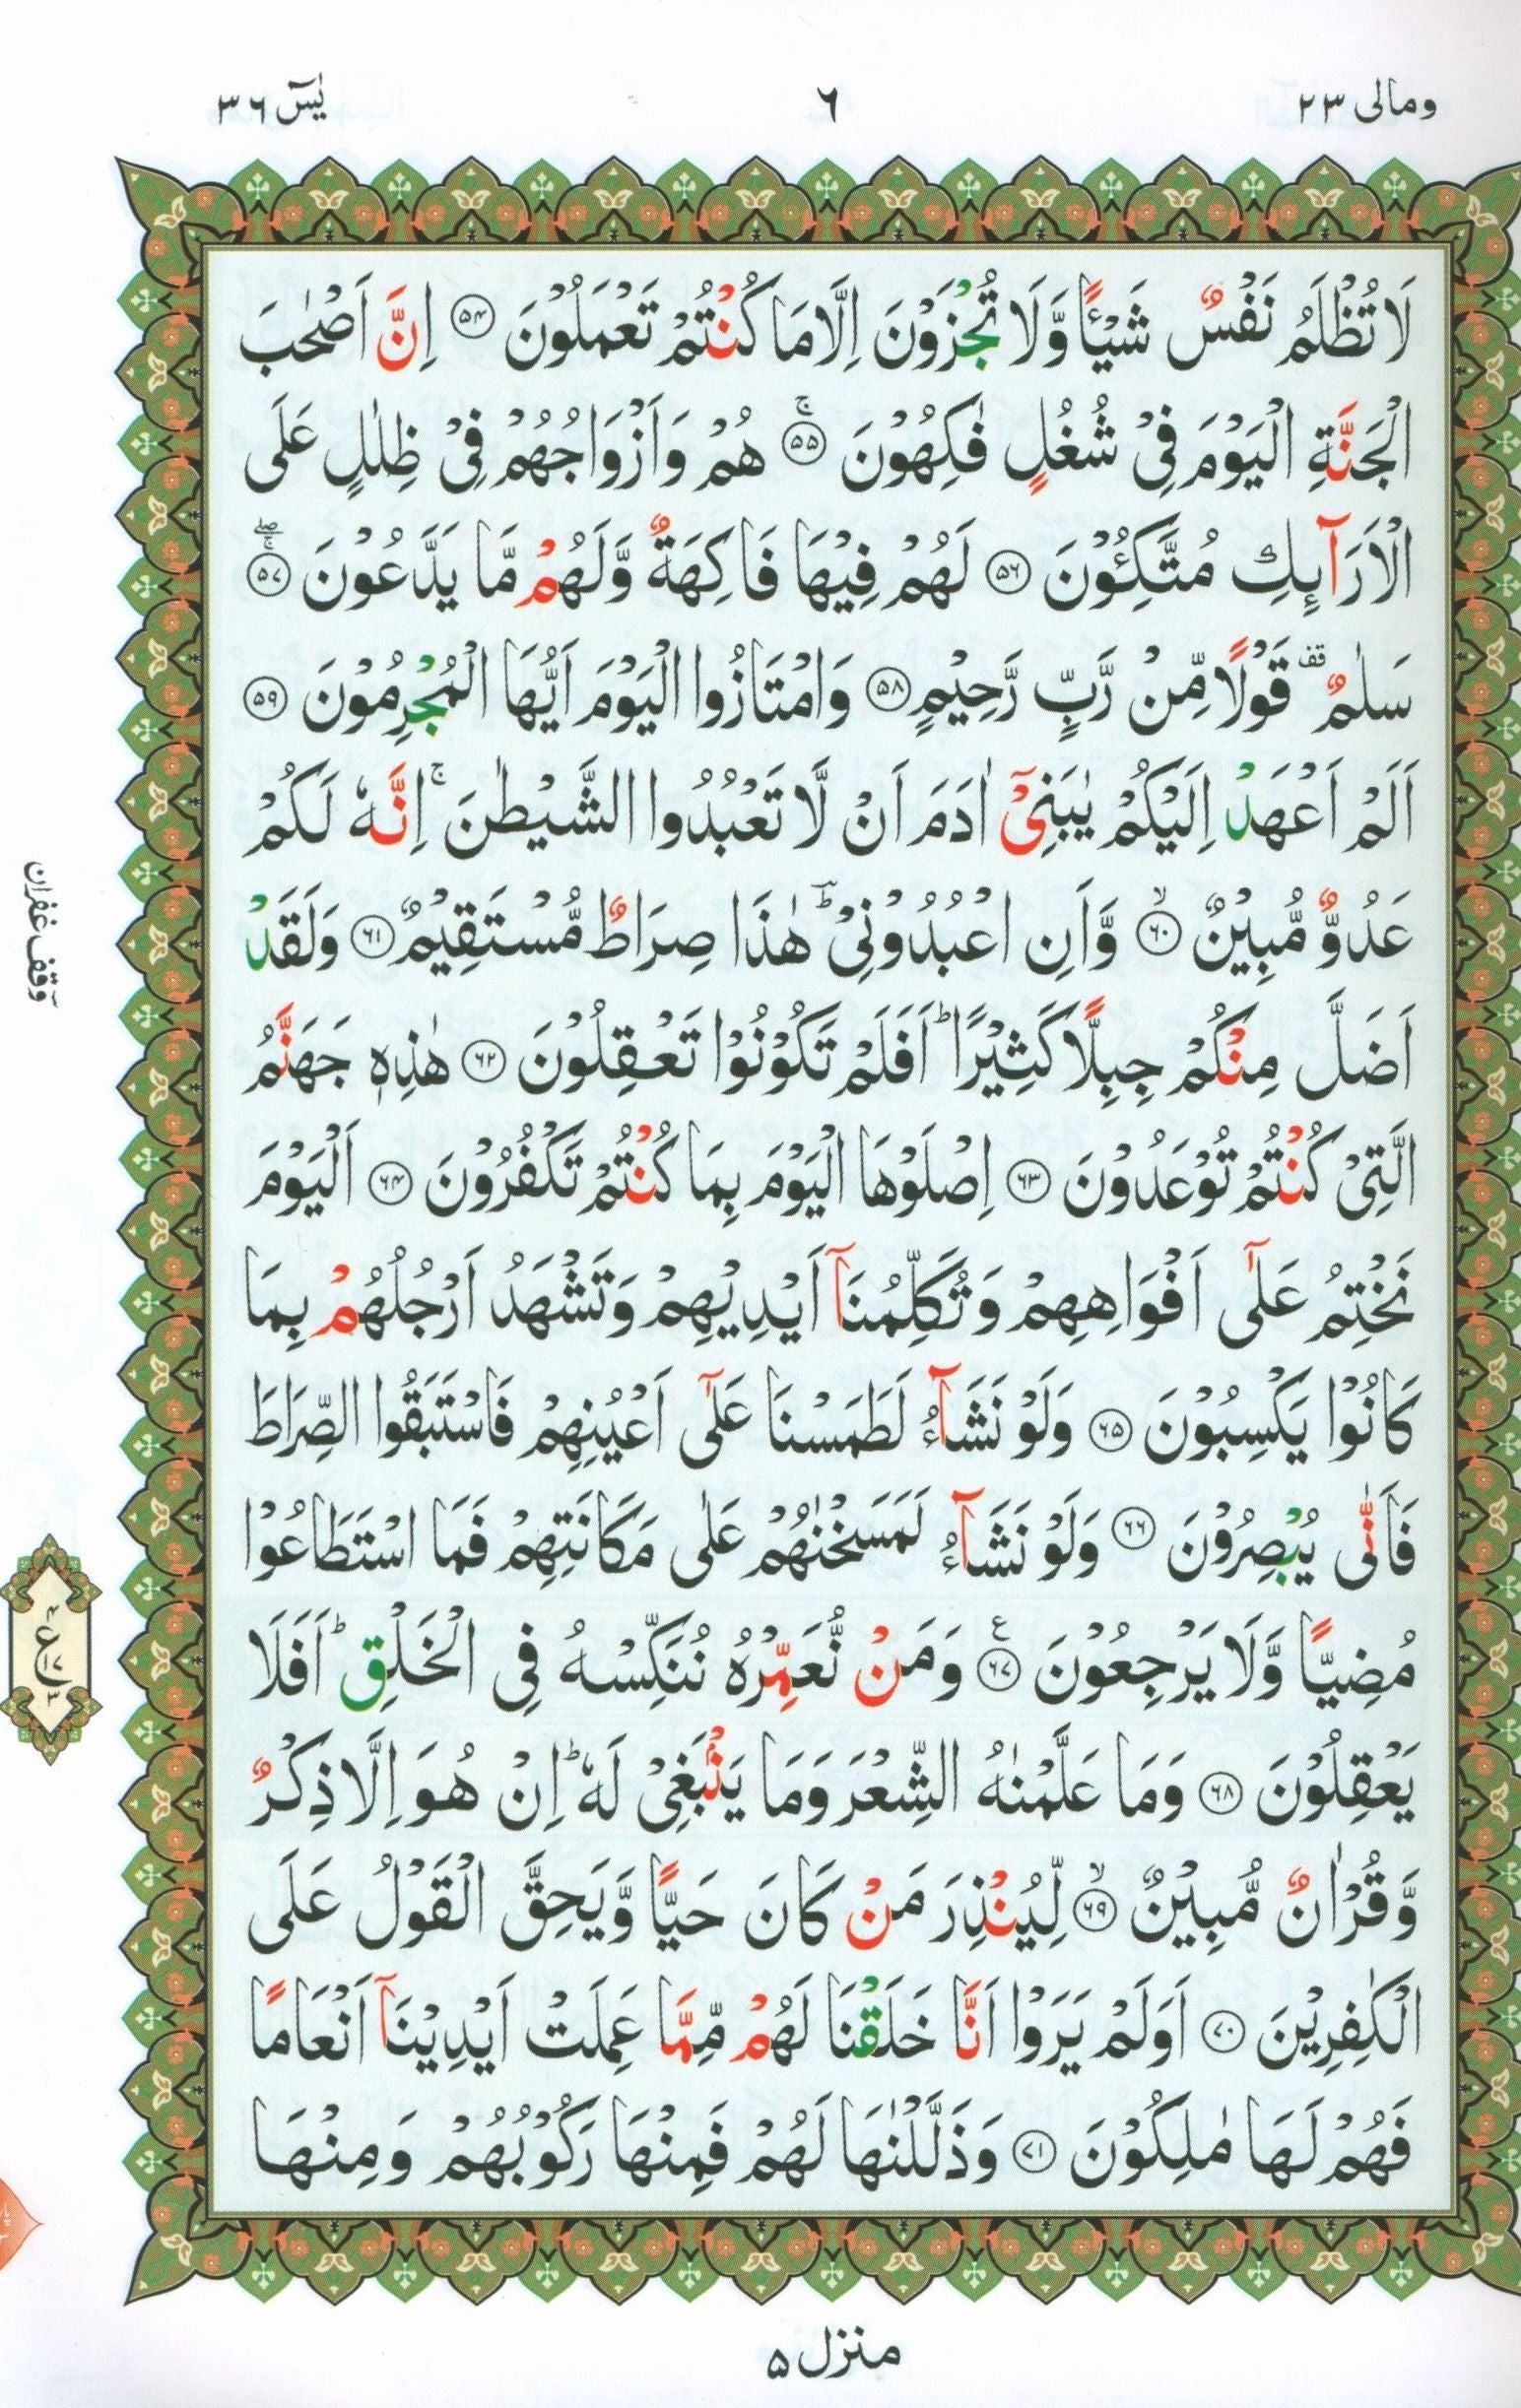 ومالی ٢٣
٦
یٰسٓ ٣٦
لَا تُظْلَمُ نَفْسٌ شَیْـًٔا وَّلَا تُجْزَوْنَ اِلَّا مَا كُنْتُمْ تَعْمَلُوْنَ ۝۵۴ اِنَّ اَصْحٰبَ
الْجَنَّةِ الْیَوْمَ فِیْ شُغُلٍ فٰكِهُوْنَ ۝۵۵ۚ هُمْ وَاَزْوَاجُهُمْ فِیْ ظِلٰلٍ عَلَی
الْاَرَآىِٕكِ مُتَّكِـُٔوْنَ ۝۵۶ لَهُمْ فِیْهَا فَاكِهَةٌ وَّلَهُمْ مَّا یَدَّعُوْنَ ۝۵۷ۚۖ
سَلٰمٌ قف قَوْلًا مِّنْ رَّبٍّ رَّحِیْمٍ ۝۵۸ وَامْتَازُوا الْیَوْمَ اَیُّهَا الْمُجْرِمُوْنَ ۝۵۹
اَلَمْ اَعْهَدْ اِلَیْكُمْ یٰبَنِیْۤ اٰدَمَ اَنْ لَّا تَعْبُدُوا الشَّیْطٰنَ ۚ اِنَّهٗ لَكُمْ
عَدُوٌّ مُّبِیْنٌ ۝۶۰ۙ وَّاَنِ اعْبُدُوْنِیْ ؕؔ هٰذَا صِرَاطٌ مُّسْتَقِیْمٌ ۝۶۱ وَلَقَدْ
اَضَلَّ مِنْكُمْ جِبِلًّا كَثِیْرًا ؕ اَفَلَمْ تَكُوْنُوْا تَعْقِلُوْنَ ۝۶۲ هٰذِهٖ جَهَنَّمُ
الَّتِیْ كُنْتُمْ تُوْعَدُوْنَ ۝۶۳ اِصْلَوْهَا الْیَوْمَ بِمَا كُنْتُمْ تَكْفُرُوْنَ ۝۶۴ اَلْیَوْمَ
نَخْتِمُ عَلٰۤی اَفْوَاهِهِمْ وَتُكَلِّمُنَاۤ اَیْدِیْهِمْ وَتَشْهَدُ اَرْجُلُهُمْ بِمَا
كَانُوْا یَكْسِبُوْنَ ۝۶۵ وَلَوْ نَشَآءُ لَطَمَسْنَا عَلٰۤی اَعْیُنِهِمْ فَاسْتَبَقُوا الصِّرَاطَ
فَاَنّٰی یُبْصِرُوْنَ ۝۶۶ وَلَوْ نَشَآءُ لَمَسَخْنٰهُمْ عَلٰی مَكَانَتِهِمْ فَمَا اسْتَطَاعُوْا
مُضِیًّا وَّلَا یَرْجِعُوْنَ ۝۶۷ ع وَمَنْ نُّعَمِّرْهُ نُنَكِّسْهُ فِی الْخَلْقِ ؕ اَفَلَا
یَعْقِلُوْنَ ۝۶۸ وَمَا عَلَّمْنٰهُ الشِّعْرَ وَمَا یَنْۢبَغِیْ لَهٗ ؕ اِنْ هُوَ اِلَّا ذِكْرٌ
وَّقُرْاٰنٌ مُّبِیْنٌ ۝۶۹ۙ لِّیُنْذِرَ مَنْ كَانَ حَیًّا وَّیَحِقَّ الْقَوْلُ عَلَی
الْكٰفِرِیْنَ ۝۷۰ اَوَلَمْ یَرَوْا اَنَّا خَلَقْنَا لَهُمْ مِّمَّا عَمِلَتْ اَیْدِیْنَاۤ اَنْعَامًا
فَهُمْ لَهَا مٰلِكُوْنَ ۝۷۱ وَذَلَّلْنٰهَا لَهُمْ فَمِنْهَا رَكُوْبُهُمْ وَمِنْهَا
وقف غفران
منزل ۵